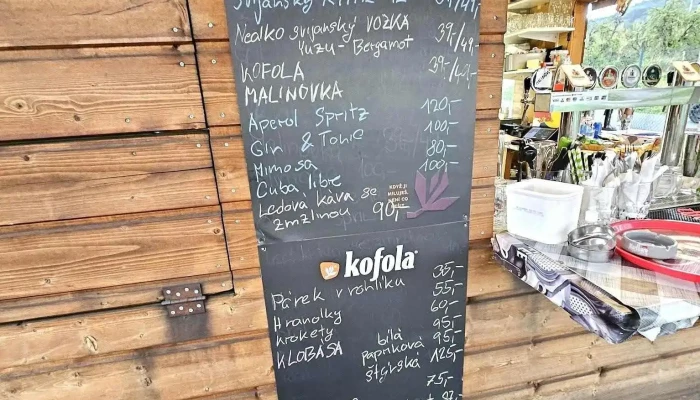 Svijanský 
Nealko svijanský VOZKA 39/49,-
Yuzu - Bergamot
KOFOLA 39,-/49,-
MALINOVKA
Aperol Spritz 120,-
Gin & Tonic 100,-
Mimosa 80,-
Cuba libre 100,-
Ledová káva se
zmzlinou 90,-
KDYŽ JI
MILUJEŠ,
NENÍ CO
ŘEŠIT
kofola
Párek v rohlíku 35,-
Hranolky 55,-
Krokety 60,-
KLOBÁSA bílá 95,-
papriková 95,-
štýrská 125,-
75,-